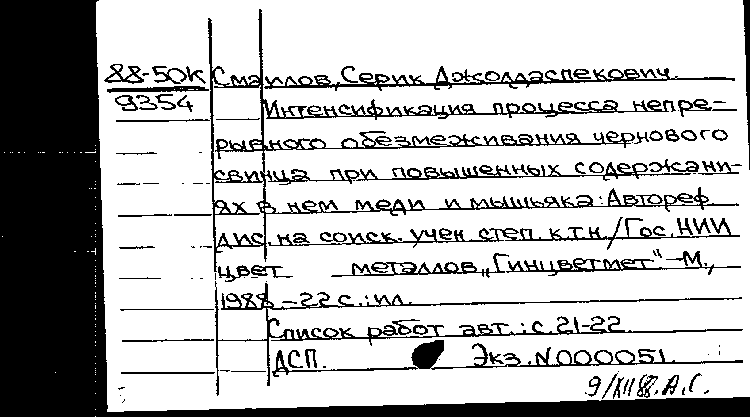 88-50К Смаилов, Серик Джолдаспекович.
9354 Интенсификация процесса непре-
рывного обезмеживания чернового
свинца при повышенных содержани-
ях в нем меди и мышьяка: Автореф.
дис. на соиск. учен. степ. к.т.н./Гос. НИИ
цвет металлов „Гинцветмет" -М.,
1988 - 22 с.: ил.
Список работ авт.: с. 21-22.
ДСП. Экз. N000051.
9/XII 88. А.С.